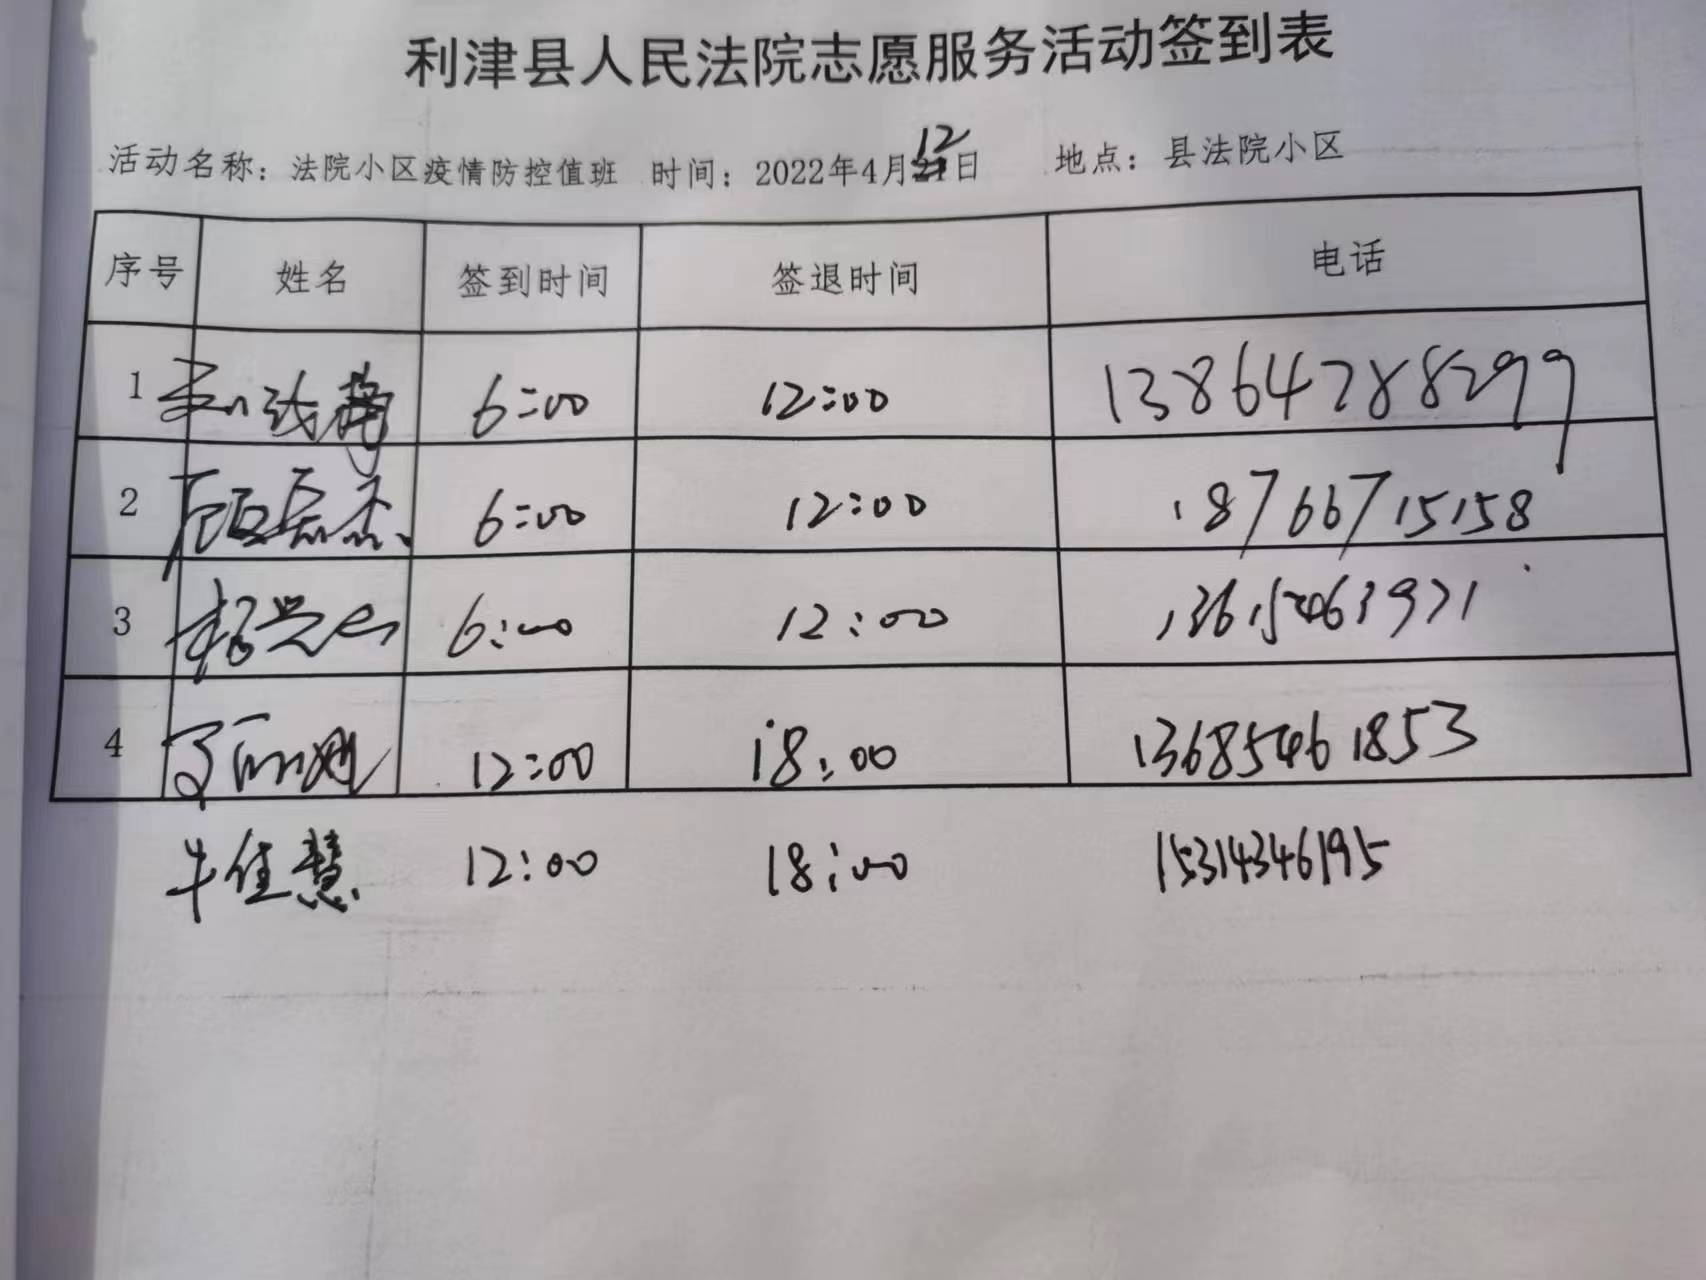 利津县人民法院志愿服务活动签到表
活动名称：法院小区疫情防控值班 时间：2022年4月12日 地点：县法院小区
序号 姓名 签到时间 签退时间 电话
1 6:00 12:00 13864788299
2 6:00 12:00 18766715158
3 6:00 12:00 13615463971
4 12:00 18:00 13685461853
牛佳慧 12:00 18:00 15314346195